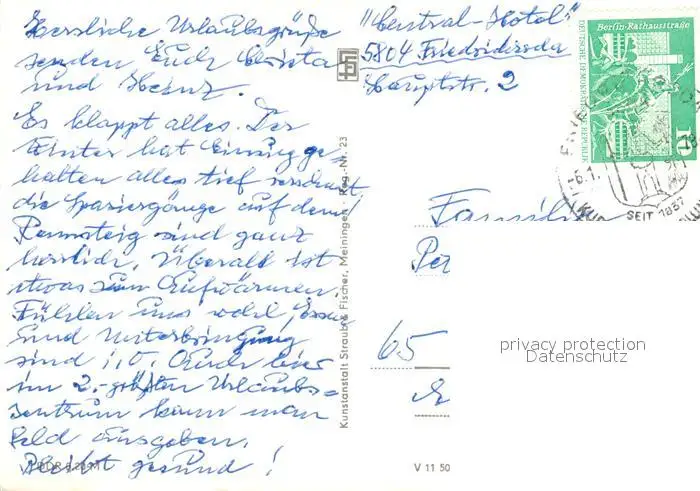 Herzliche Urlaubsgrüße
senden Euch Christa
und Heinz.
Es klappt alles. Der
Winter hat Einzug ge-
halten alles tief verschneit,
die Spaziergänge auf dem
Rennsteig sind ganz
herrlich. Überall ist
etwas zum Aufwärmen.
Fühlen uns wohl, Essen
und Unterbringung
sind i.O. Auch hier
im 2.-größten Urlaubs-
zentrum kann man
Geld ausgeben.
Bleibt gesund!
"Central-Hotel"
5804 Friedrichroda
Hauptstr. 2
Berlin-Rathausstraße
DEUTSCHE DEMOKRATISCHE REPUBLIK
10
SEIT 1837
Familie
Pet
65
privacy protection
Datenschutz
Kunstanstalt Straub & Fischer, Meiningen · Reg.-Nr. 23
V 11 50